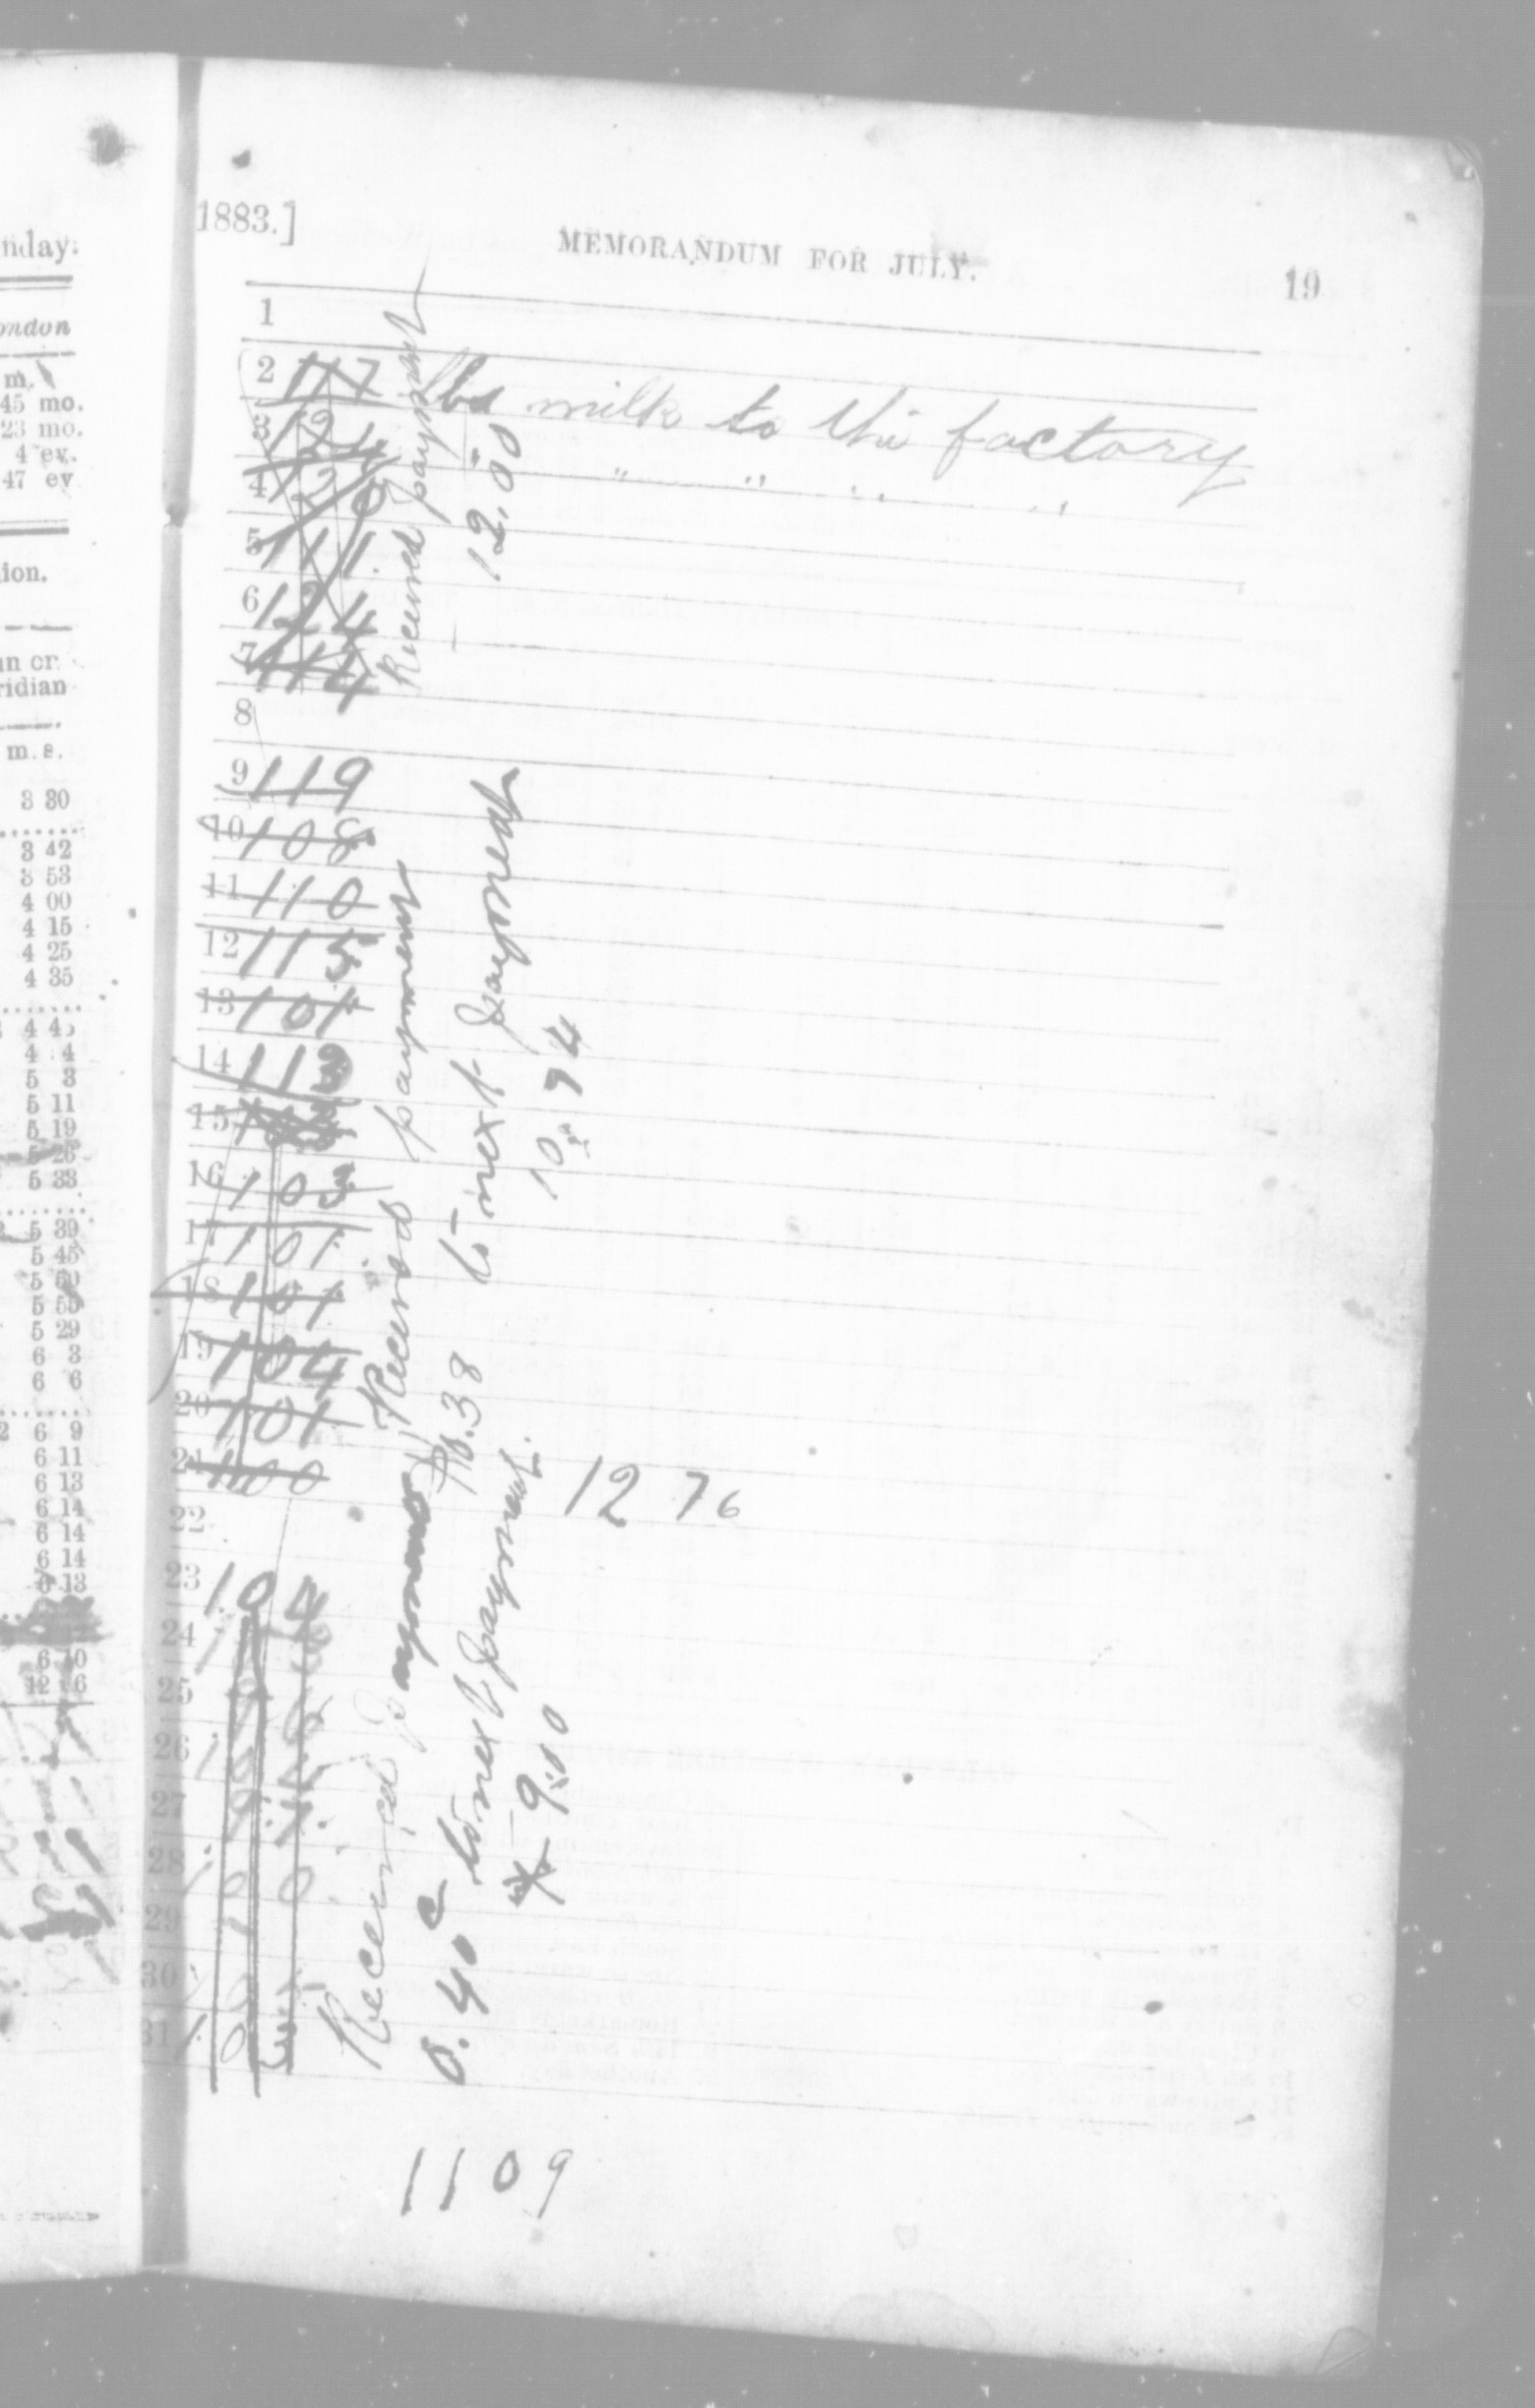 1883.]
MEMORANDUM FOR JULY.
19
1
2 117 lbs milk to the factory
3 124 " " " " "
4 126
5 111
6 124
7 114
8
9 119
10 108
11 110
12 115
13 101
14 113
15
16 103
17 101
18 101
19 104
20 101
21 100
22
23 104
24
25
26
27
28 100
29
30
31 103
Received payment
12.00
Received payment
.38 to next payment
10.94
Received payment
0.40 c to next payment.
9.00
12 76
1109
nday.
ondon
m.
45 mo.
23 mo.
4 ev.
47 ev
ion.
un or
ridian
m. s.
3 30
3 42
3 53
4 00
4 15
4 25
4 35
4 4
5 3
5 11
5 19
5 26
5 33
5 39
5 45
5 50
5 55
5 29
6 3
6 6
6 9
6 11
6 13
6 14
6 14
6 14
6 13
6 10
12 6 6